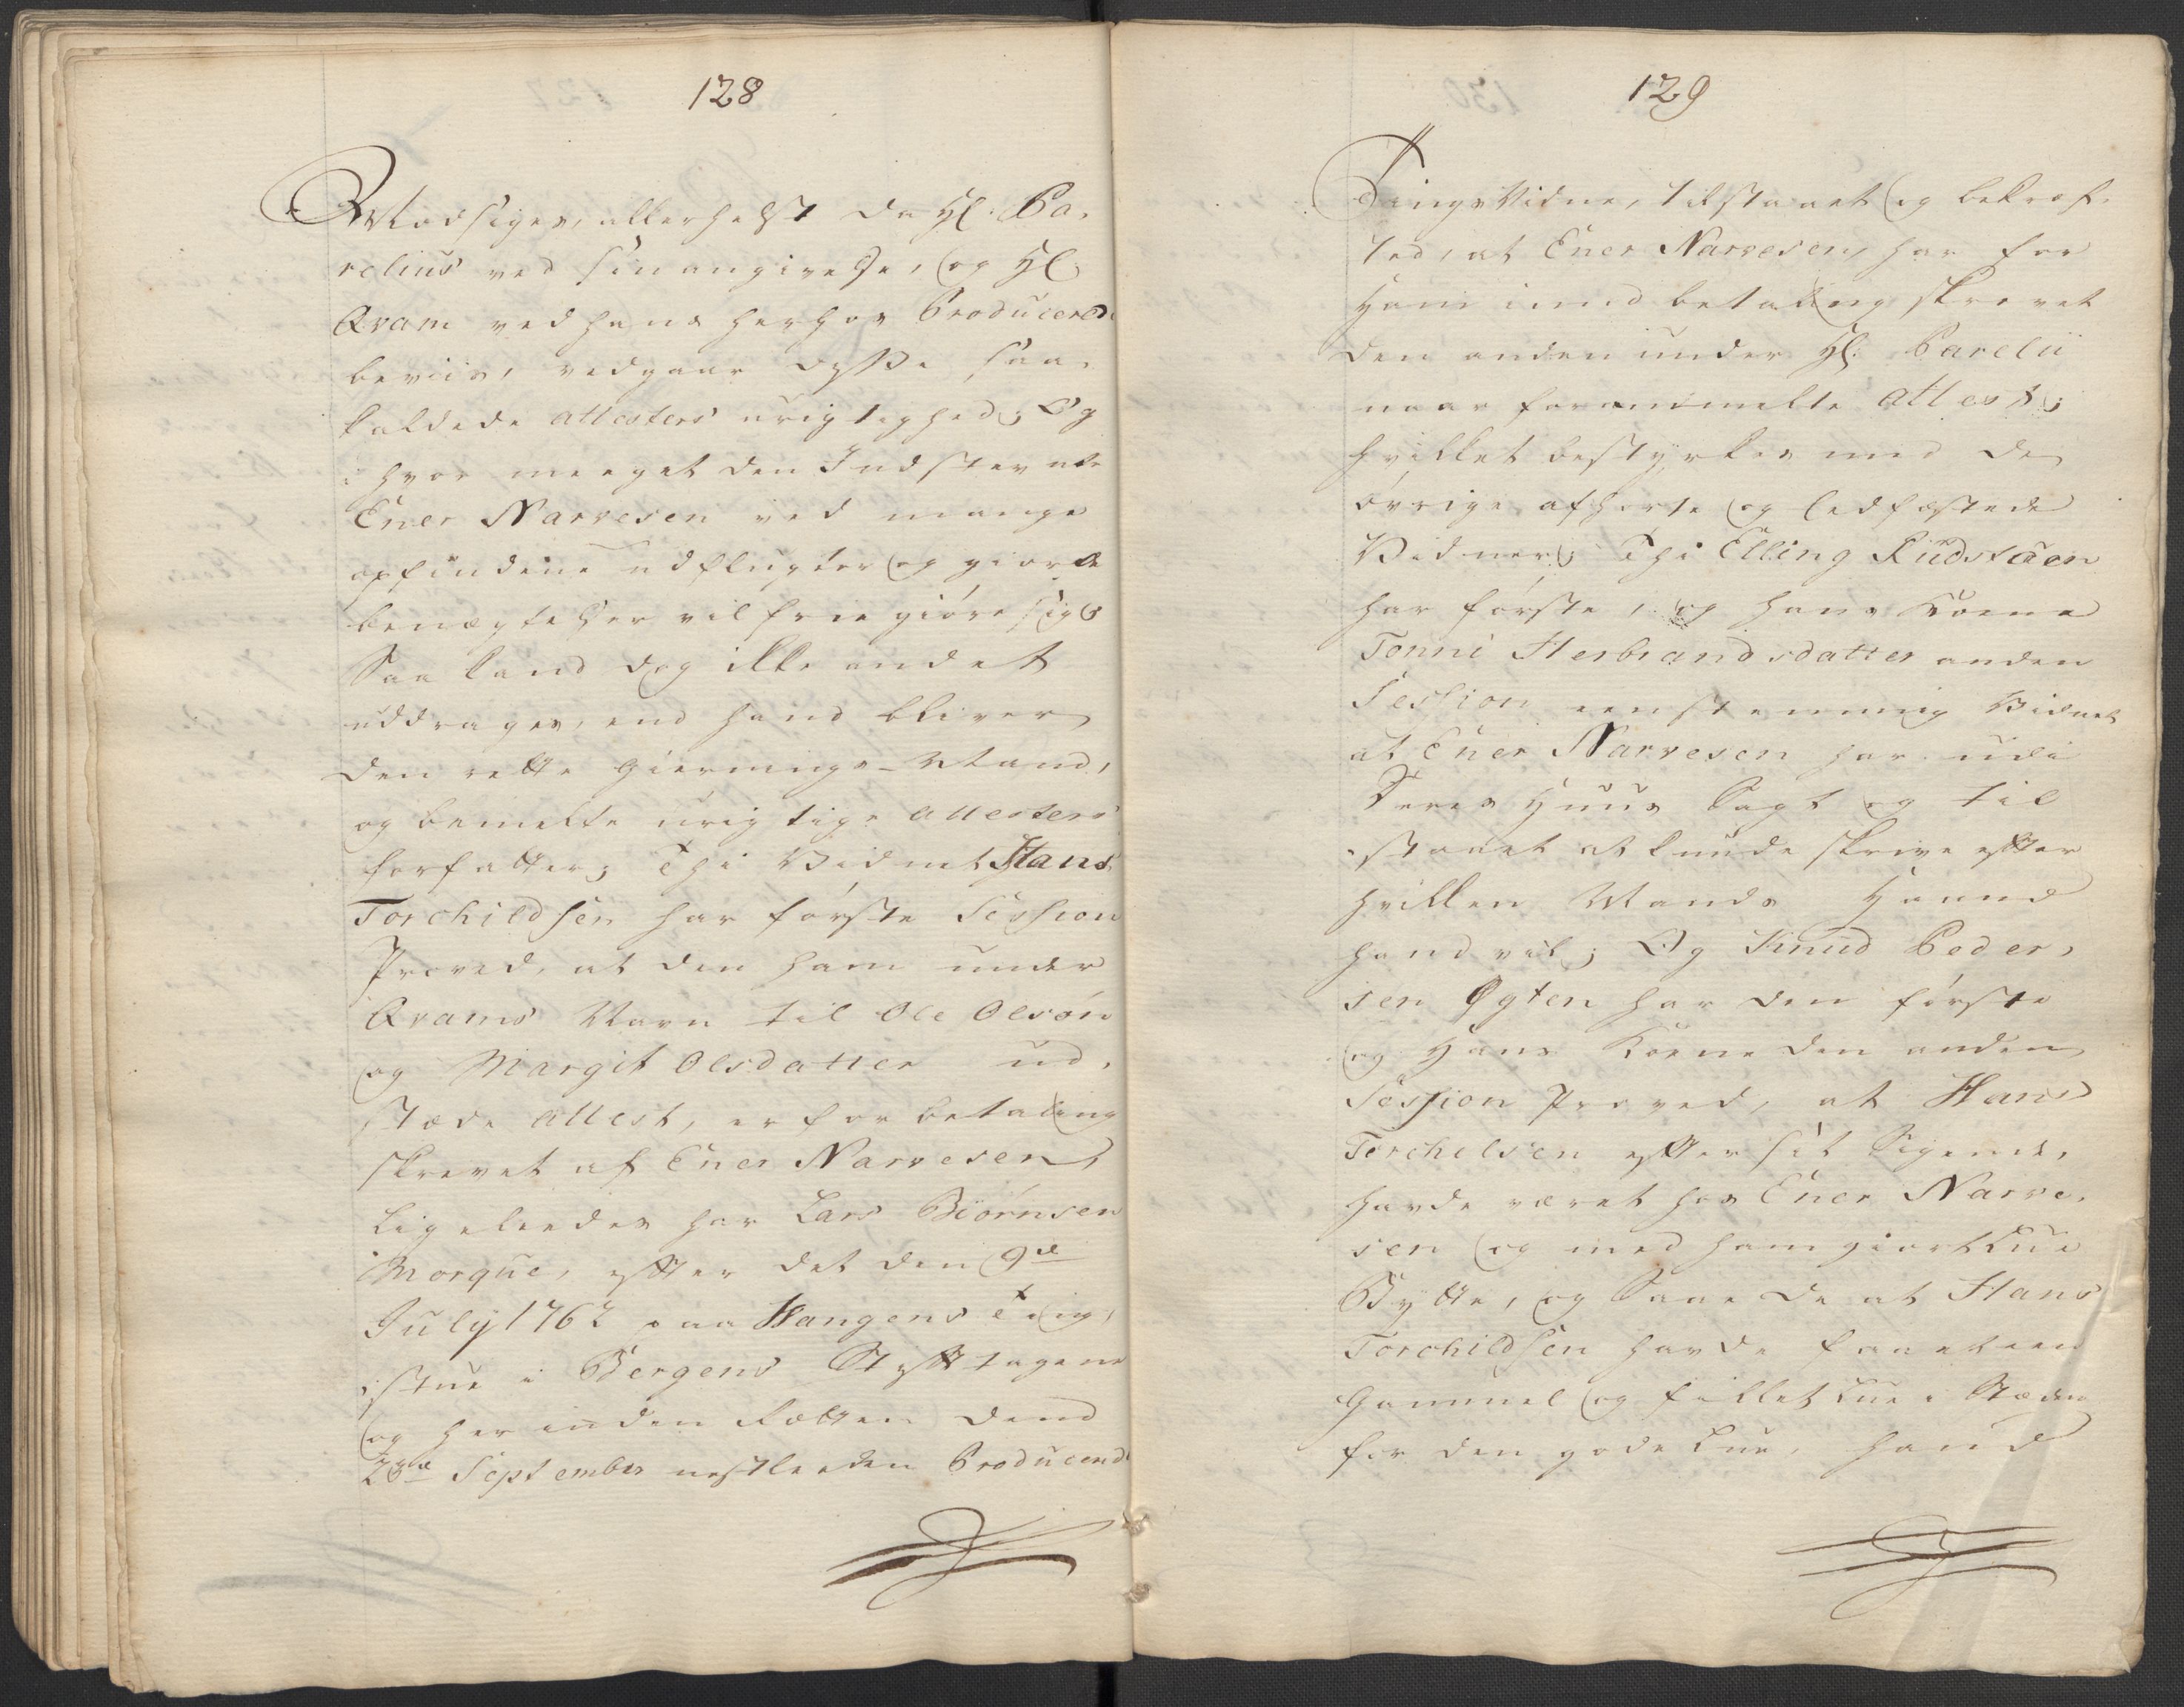 128
Modsiges, allerhelst da Hl: Pa-
relius ved sin angivelse, og Hl:
Qvam ved hans herhos Producered
beviis, vedgaar disse saa-
kaldede attesters urigtighed; Og
i hvor meeget den Indstevnte
Ener Narvesen ved mange
opfindene udflugter og giorte
benægtelser vil frie giøre sig,
Saa kand dog ikke andet
uddrages, end hand bliver
den rette Giernings-Mand,
og bemelte urigtige attesters
forfatter; Thi Vidnet Hans
Torchildsen har første Session
Proved, at den ham under
Qvams Navn til Ole Olsøn
og Margit Olsdatter ud-
stæde attest, er for betaling
skrevet af Ener Narvesen,
Ligeleedes har Lars Biørnsen
Morque, efter det den 9de
July 1762 paa Hangens Ting-
stue i Bergens Stift tagene
og her inden Rætten dend
28de September nestleeden Producered
129
Tings Vidne, tilstaaet og bekræf-
ted, at Ener Narvesen, har for
Ham imod betaling skrevet
den anden under Hl: Parelii
naar forommelte attest;
hvilket bestyrkes med de
øvrige afhørte og Eedfæstede
Vidner; Thi Elling Rudstøen
har første, og hans Kone
Tonni Herbrandsdatter anden
Session eenstemmig Vidnet
at Ener Narvesen har udi
Deres Huus Sagt og til-
staaet at kunde skrive efter
hvilken Mands Haand
hand vil; Og Knud Peder-
sen Øgten har den første
og Hans Kone den anden
Session Proved, at Hans
Torchelsen efter sit Sigende,
havde været hos Ener Narve-
sen og med ham giort Kue
Bytte, og Saae de at Hans
Torchildsen havde faaet een
Gammel og fillet Lue i Stæden
for den gode Lue, hand